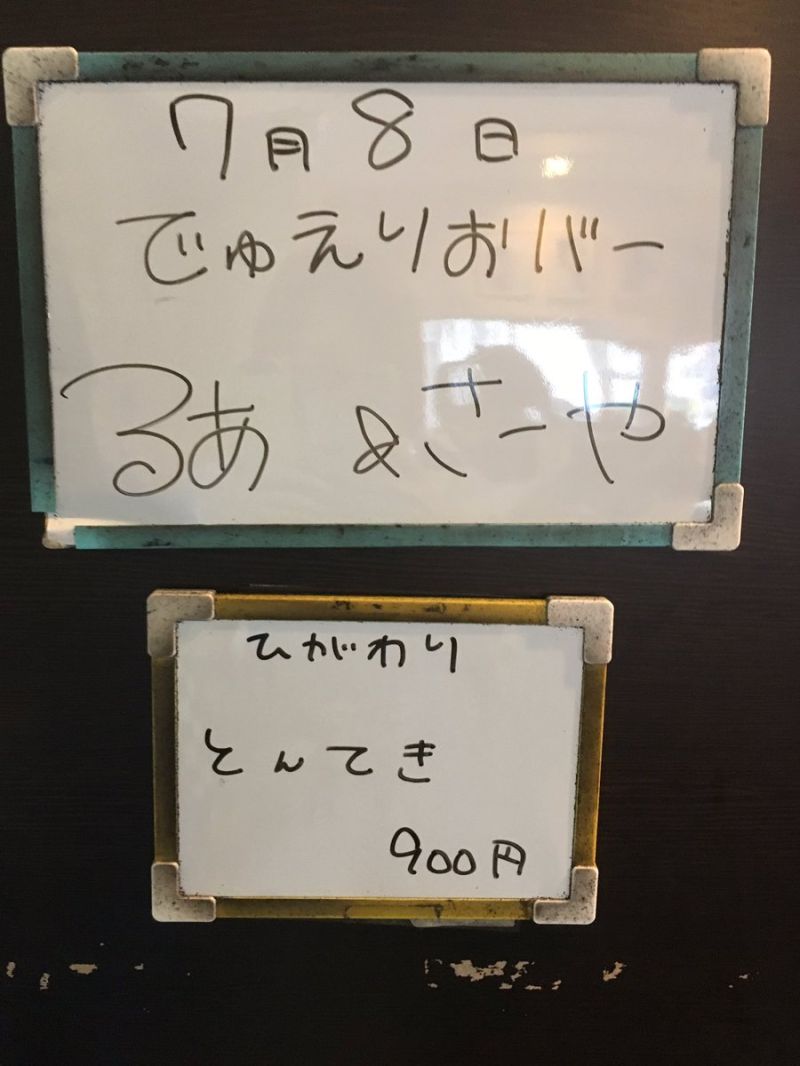 7月8日
でゅえりおバー
るあ & さーや
ひがわり
とんてき
900円